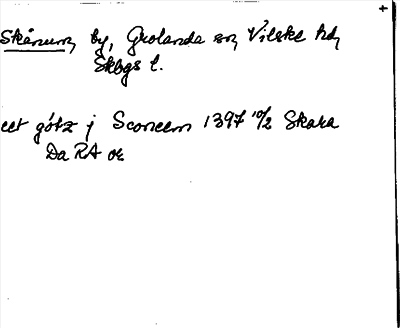 Skånum, by, Grolanda sn, Vilske hd,
Skbgs l.
eet gótz j Sconeem 1397 10/2 Skara
Da RA or